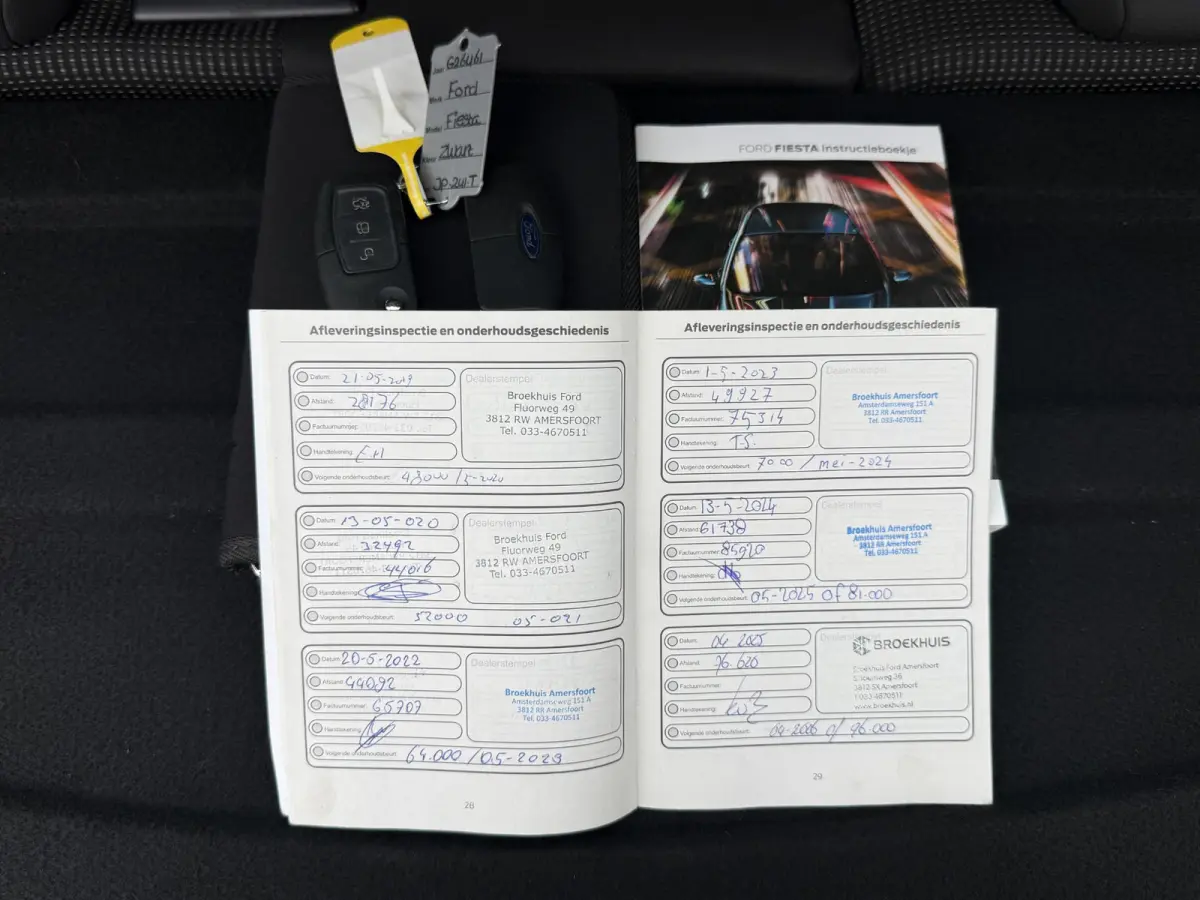 Ford
Fiesta
Zwart
JP-241-T
Ford
FORD FIESTA Instructieboekje
Afleveringsinspectie en onderhoudsgeschiedenis
Datum: 21-05-2019
Afstand: 28176
Factuurnummer:
Handtekening: E.H
Volgende onderhoudsbeurt: 48000 / 5-2020
Dealerstempel
Broekhuis Ford
Fluorweg 49
3812 RW AMERSFOORT
Tel. 033-4670511
Datum: 13-05-020
Afstand: 32492
Factuurnummer: 44016
Handtekening:
Volgende onderhoudsbeurt: 52000 05-021
Dealerstempel
Broekhuis Ford
Fluorweg 49
3812 RW AMERSFOORT
Tel. 033-4670511
Datum: 20-5-2022
Afstand: 44092
Factuurnummer: 65707
Handtekening:
Volgende onderhoudsbeurt: 64.000 / 05-2023
Dealerstempel
Broekhuis Amersfoort
Amsterdamseweg 151 A
3812 RR Amersfoort
Tel. 033-4670511
28
Afleveringsinspectie en onderhoudsgeschiedenis
Datum: 1-5-2023
Afstand: 49927
Factuurnummer: 75314
Handtekening: T.S.
Volgende onderhoudsbeurt: 7000 / mei-2024
Dealerstempel
Broekhuis Amersfoort
Amsterdamseweg 151 A
3812 RR Amersfoort
Tel. 033-4670511
Datum: 13-5-2024
Afstand: 61738
Factuurnummer: 85920
Handtekening:
Volgende onderhoudsbeurt: 05-2025 of 81.000
Dealerstempel
Broekhuis Amersfoort
Amsterdamseweg 151 A
3812 RR Amersfoort
Tel. 033-4670511
Datum: 04 2025
Afstand: 76.626
Factuurnummer: /
Handtekening:
Volgende onderhoudsbeurt: 04-2026 of 96.000
Dealerstempel
BROEKHUIS
Broekhuis Ford Amersfoort
3812 SX Amersfoort
T 033-4670511
www.broekhuis.nl
29